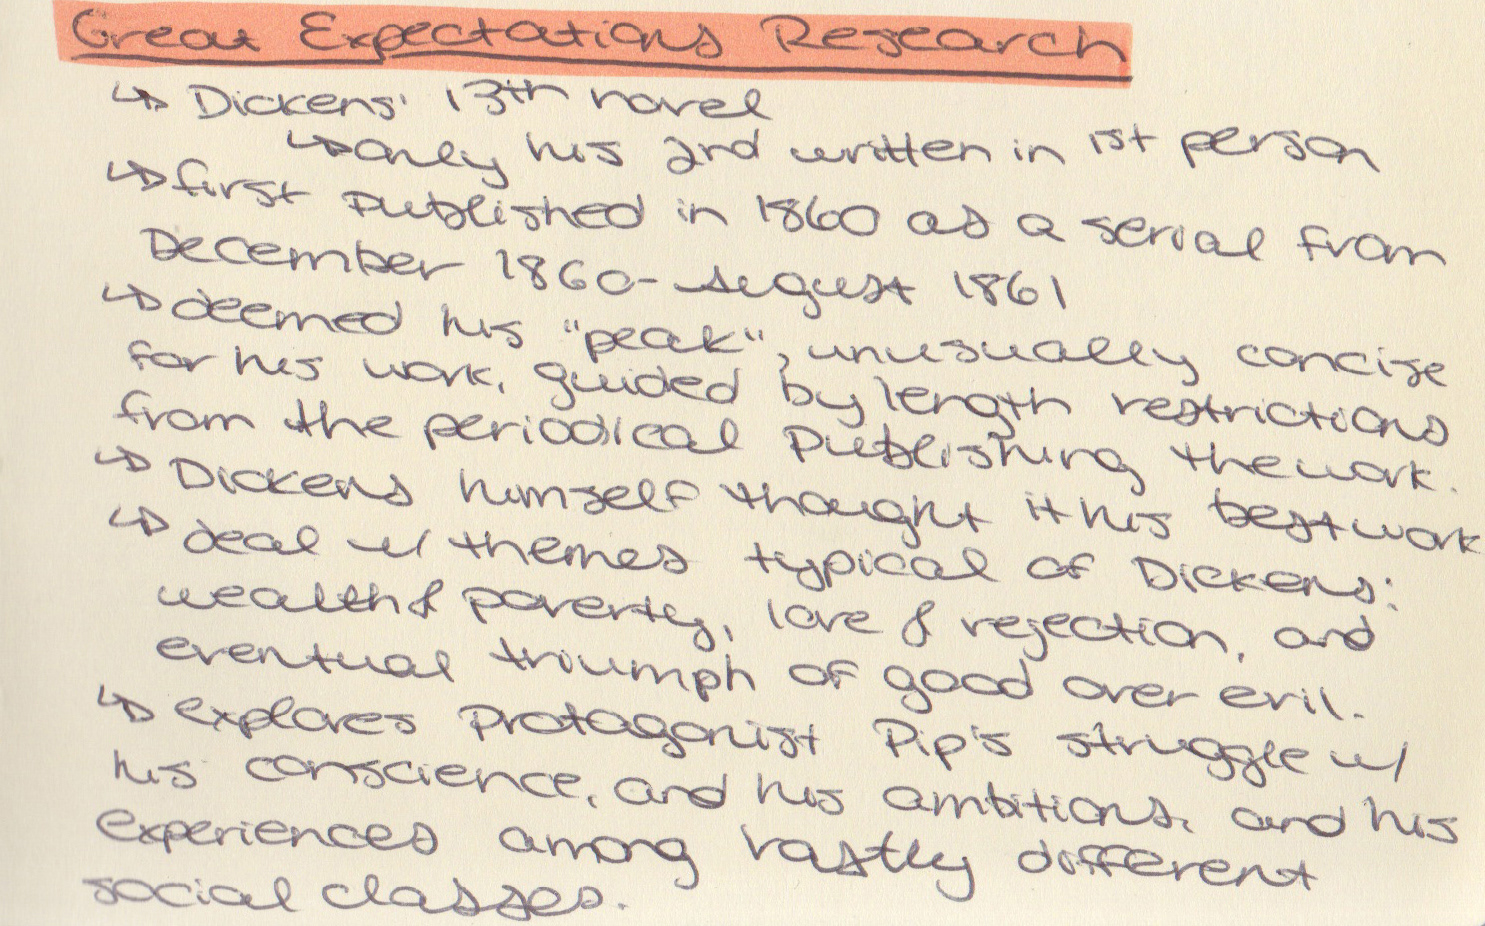 Great Expectations Research
↳ Dickens' 13th novel
↳ only his 2nd written in 1st person
↳ first published in 1860 as a serial from
December 1860- August 1861
↳ deemed his "peak", unusually concise
for his work, guided by length restrictions
from the periodical publishing the work.
↳ Dickens himself thought it his best work
↳ deal w/ themes typical of Dickens:
wealth & poverty, love & rejection, and
eventual triumph of good over evil.
↳ explores protagonist Pip's struggle w/
his conscience, and his ambitions, and his
experiences among vastly different
social classes.